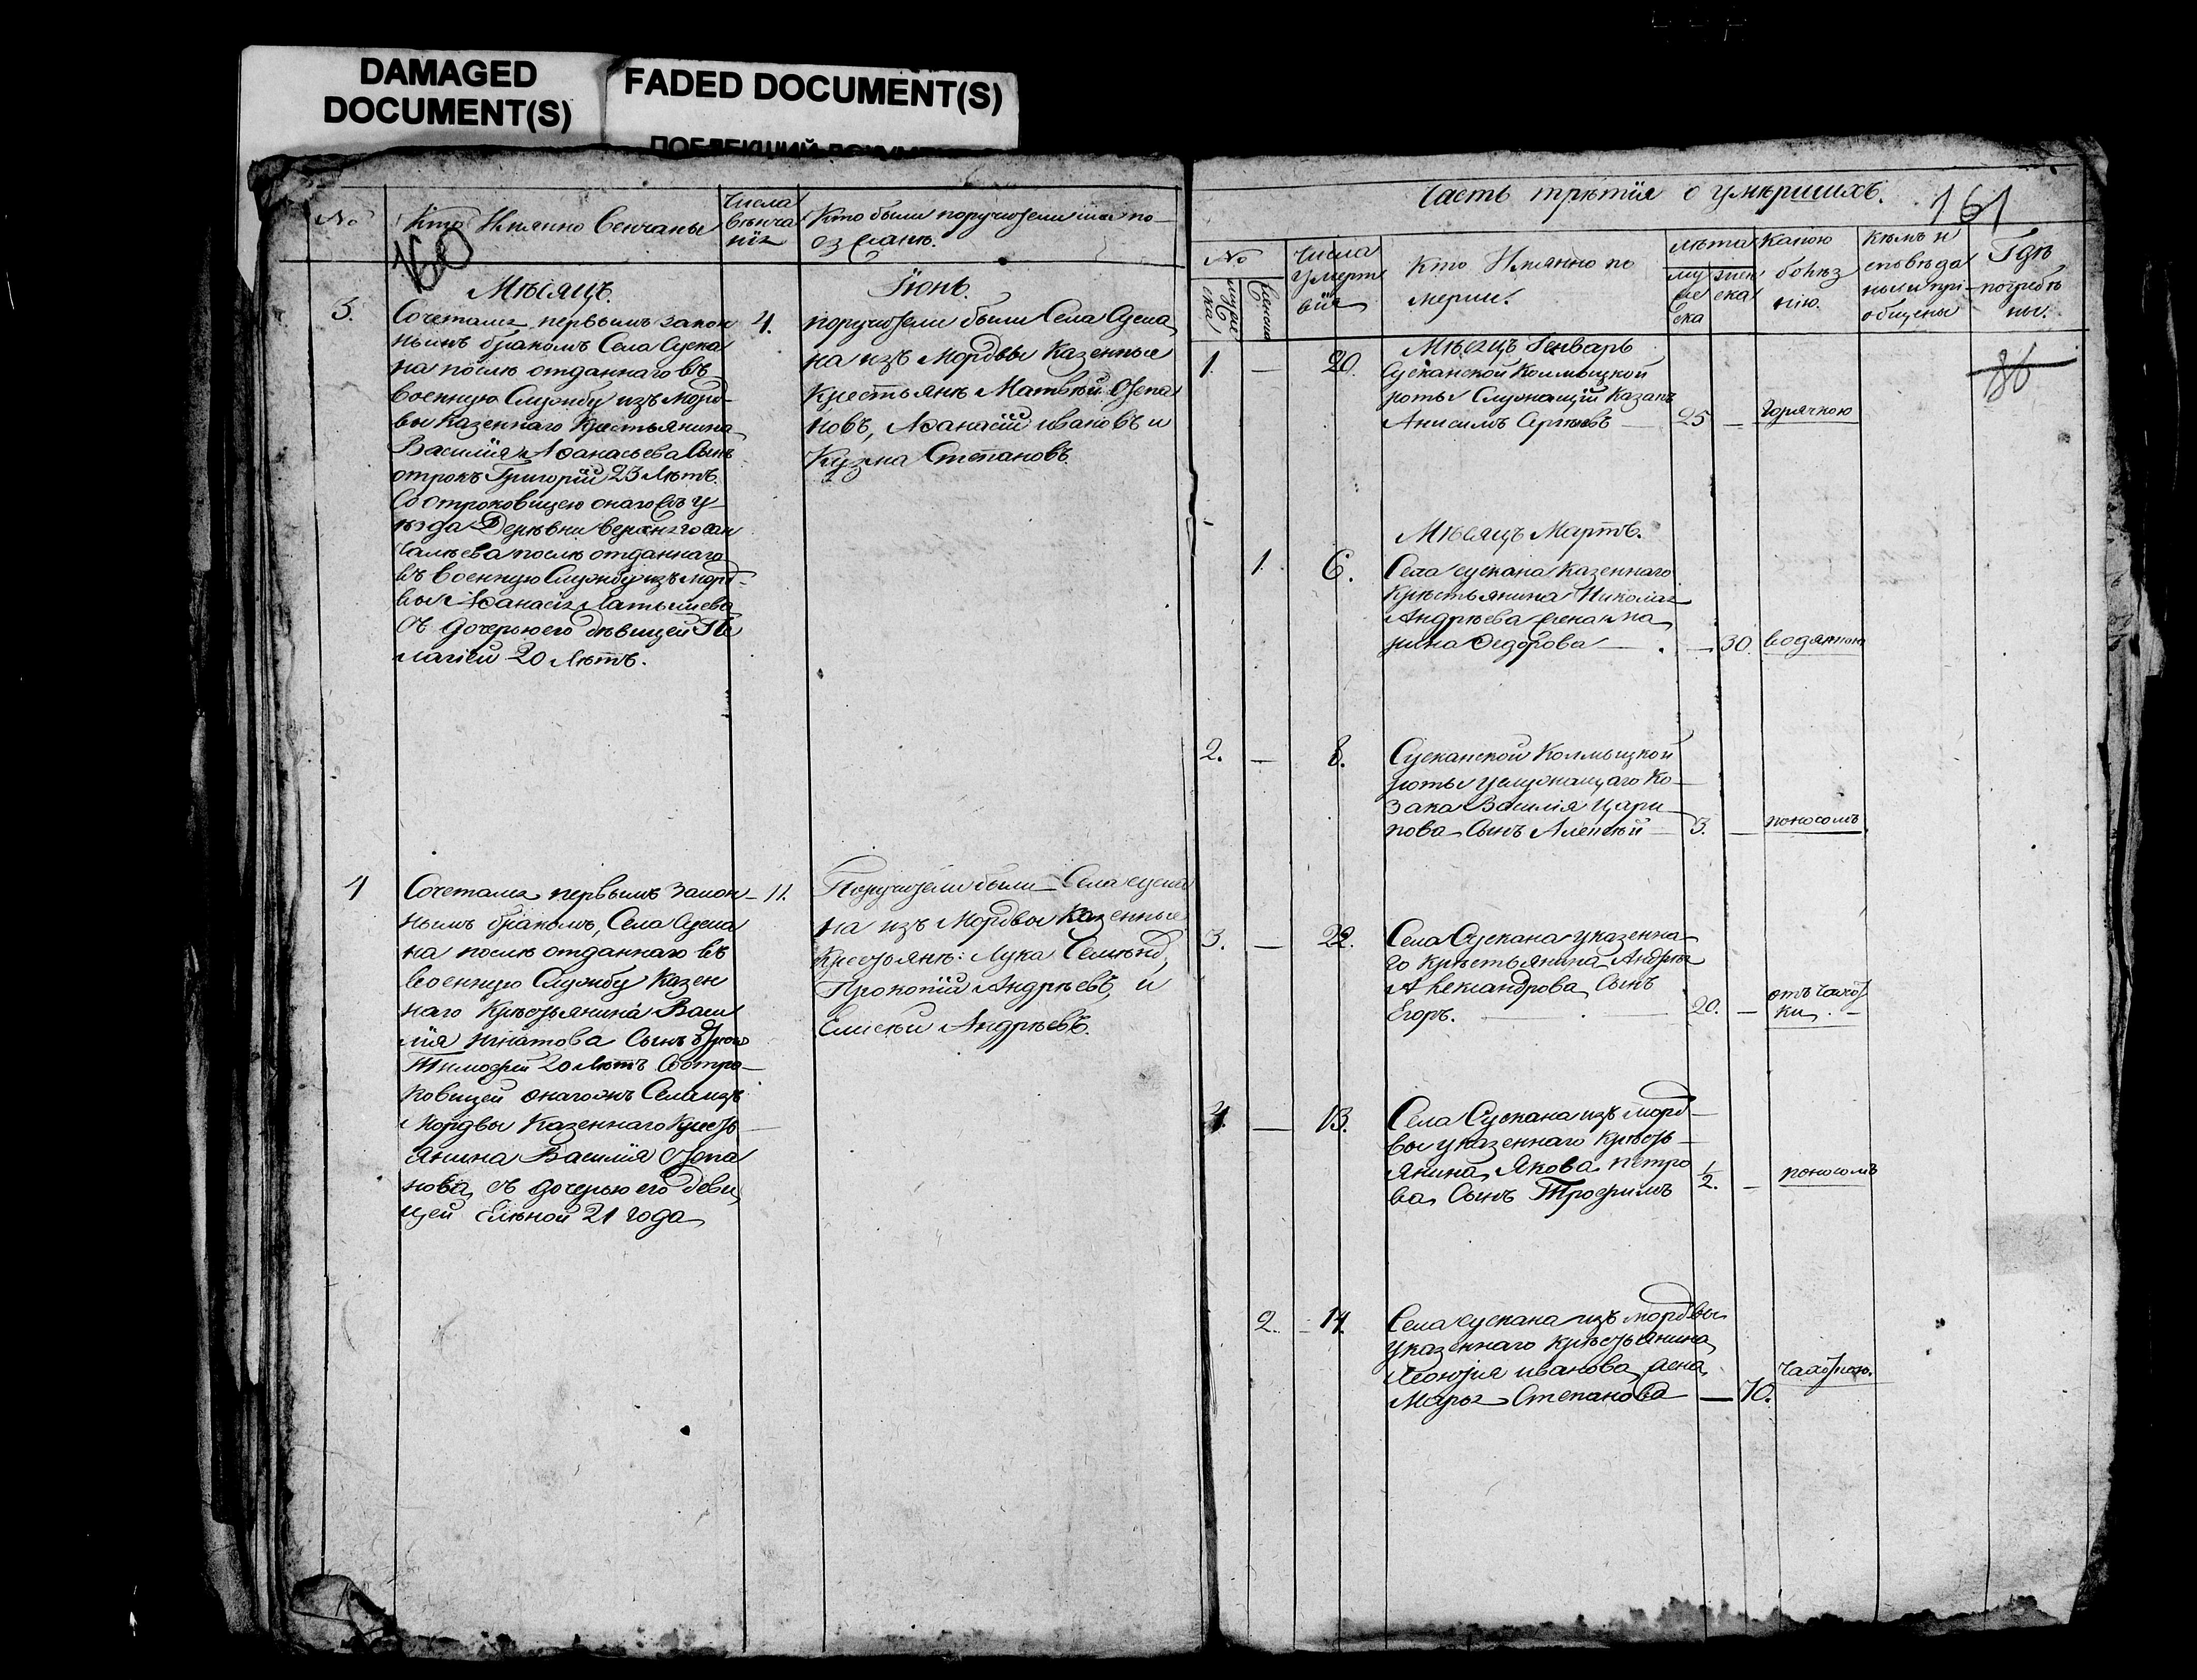 DAMAGED
DOCUMENT(S)
FADED DOCUMENT(S)
№
Кто Имянно Венчаны
Числа
вѣнча
нія
Кто были поручители или по
езжанѣ.
160
Мѣсяцъ.
Іюнь.
3.
Сочетался первымъ закон
нымъ бракомъ Села Суска
на послѣ отданнаго въ
военную Службу изъ морд
вы казеннаго крестьянина
Василія Аѳанасьева Сынъ
отрокъ Григорій 23 Лѣтъ.
Со отроковицею онагожъ у
ѣзда Деревни верхняго
послѣ отданнаго
въ военную Службу изъ морд
вы Аѳанасія
съ дочерью его дѣвицей Пе
лагіей 20 Лѣтъ.
4.
поручители были Села Суска
на изъ Мордвы Казенные
Крестьянѣ Матвѣй Степа
новъ, Аѳанасій ивановъ и
Кузма Степановъ.
4
Сочетался первымъ закон
нымъ бракомъ, Села Суска
на послѣ отданнаго въ
военную Службу Казен
наго Крестьянина Васи
лія игнатова Сынъ отрокъ
Тимофей 20 Лѣтъ Со отро
ковицей онагожъ Села изъ
Мордвы Казеннаго Кресть
янина Василія Степа
нова, съ дочерью его деви
цей Еленой 21 года
11.
Поручители были Села суска
на изъ Мордвы Казенные
Крестьянѣ: Лука Семенъ,
Прокопій Андрѣевъ, и
Елисѣй Андрѣевъ.
Часть трѣтія о умѣршихъ.
161
№
муже
ска
женска
Числа
умерт
вія
Кто Имянно по
мерли.
лѣта
му
же
ска
жен
ска
Какою
болѣз
нію.
Кѣмъ и
споведа
ны и прі
общены
Гдѣ
погребѣ
ны.
86
Мѣсяцъ Генварь
1.
—
20.
Сусканской Колмыцкой
роты Служащій Казакъ
Анисимъ Сергѣевъ
25
—
горячкою
Мѣсяцъ Мартъ.
1.
6.
Села сускана казеннаго
крѣстьянина Николая
Андрѣева жена
Федорова
—
30.
водяною
2.
—
8.
Сусканской Колмыцкой
роты служащаго ко
зака Василія Цари
нова Сынъ Алексѣй
3.
—
поносомъ
3.
—
22.
Села Сускана указенна
го крѣстьянина Андрѣя
Александрова Сынъ
Егоръ.
20.
—
отъ чахот
ки.
4.
—
13.
Села Сускана изъ морд
вы указеннаго крѣсть
янина, Якова петро
ва, Сынъ Трофимъ
1/2.
—
поносомъ
2.
14.
Села сускана изъ мордвы
указеннаго крѣстьянина
иванова жена
Марья Степанова
—
70.
чахоткою.